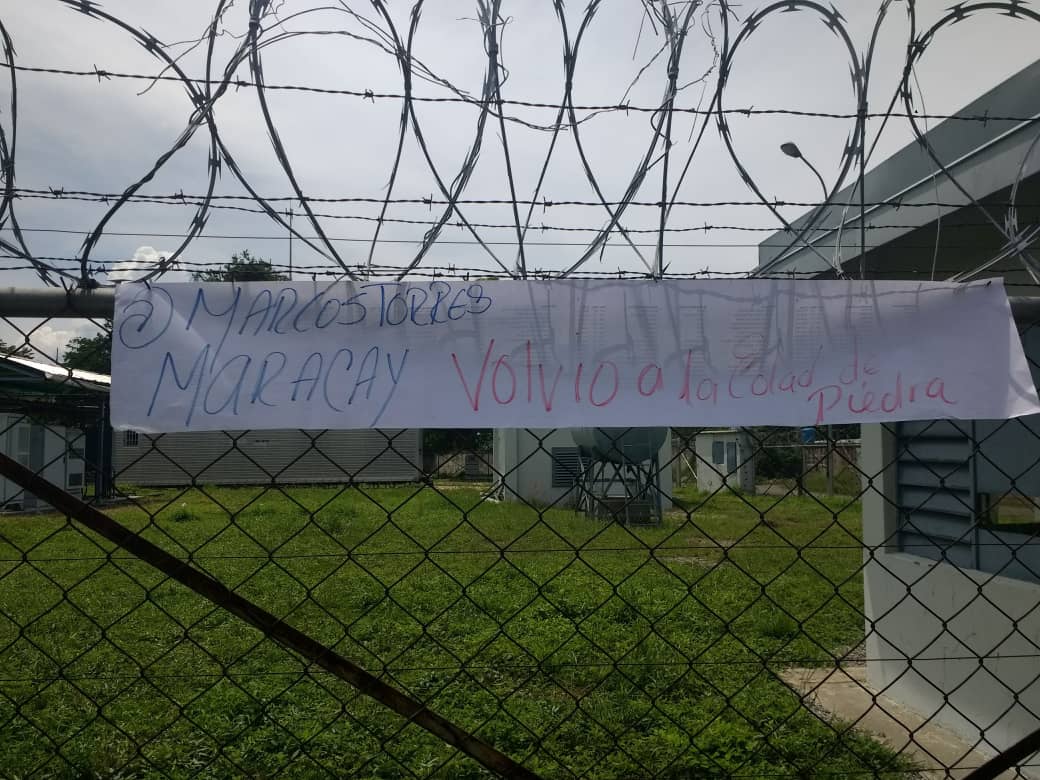 @MARCOSTORRES
MARACAY Volvio a la Edad de
Piedra